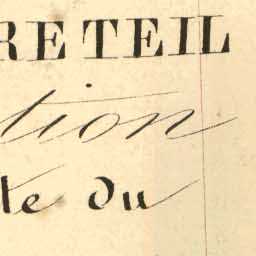 RETEIL
tion
te du